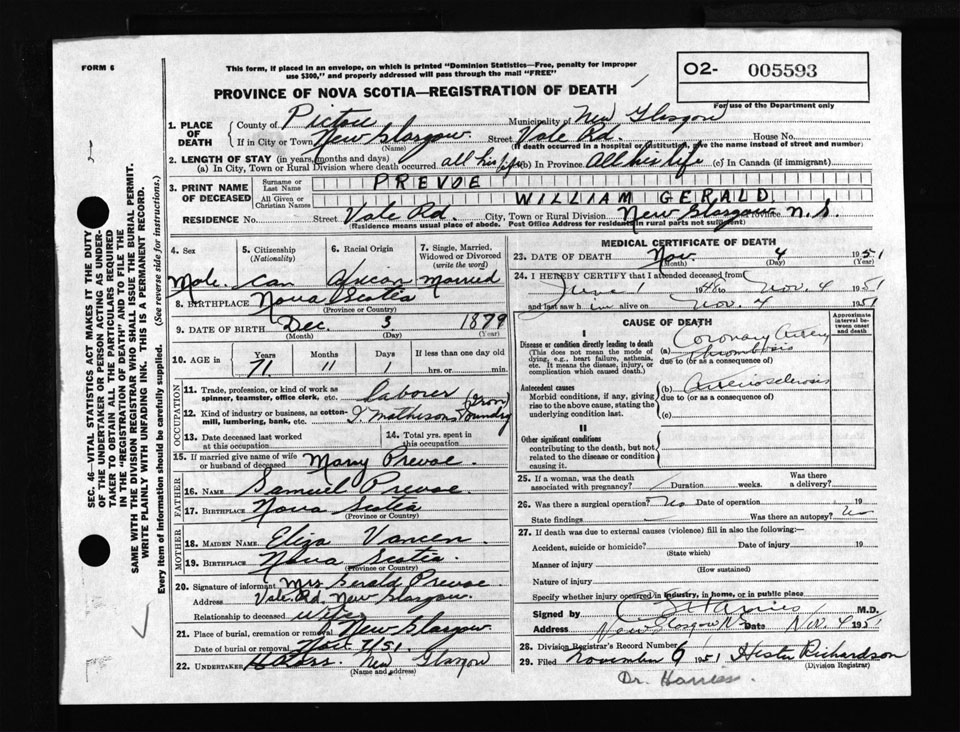 FORM 6
This form, if placed in an envelope, on which is printed "Dominion Statistics—Free, penalty for improper
use $300," and properly addressed will pass through the mail "FREE"
PROVINCE OF NOVA SCOTIA—REGISTRATION OF DEATH
O2- 005593
For use of the Department only
1. PLACE OF DEATH
County of Pictou Municipality of New Glasgow
If in City or Town New Glasgow Street Vale Rd. House No.
(Name) (If death occurred in a hospital or institution, give the name instead of street and number)
2. LENGTH OF STAY (in years, months and days)
(a) In City, Town or Rural Division where death occurred all his life (b) In Province All his life (c) In Canada (if immigrant)
3. PRINT NAME OF DECEASED
Surname or Last Name PREVOE
All Given or Christian Names WILLIAM GERALD
RESIDENCE No. Street Vale Rd. City, Town or Rural Division New Glasgow Province N.S.
(Residence means usual place of abode. Post Office Address for residents in rural parts not sufficient)
4. Sex
Male
5. Citizenship (Nationality)
Can
6. Racial Origin
African
7. Single, Married, Widowed or Divorced (write the word)
Married
8. BIRTHPLACE Nova Scotia
(Province or Country)
9. DATE OF BIRTH Dec. 3 1879
(Month) (Day) (Year)
10. AGE in Years Months Days If less than one day old
71 11 1 hrs. or min.
OCCUPATION
11. Trade, profession, or kind of work as spinner, teamster, office clerk, etc. laborer
12. Kind of industry or business, as cotton-mill, lumbering, bank, etc. I. Matheson (Iron) Foundry
13. Date deceased last worked at this occupation
14. Total yrs. spent in this occupation
15. If married give name of wife or husband of deceased Mary Prevoe.
FATHER
16. NAME Samuel Prevoe
17. BIRTHPLACE Nova Scotia
(Province or Country)
MOTHER
18. MAIDEN NAME Eliza
19. BIRTHPLACE Nova Scotia.
(Province or Country)
20. Signature of informant Mrs Gerald Prevoe
Address Vale Rd, New Glasgow.
Relationship to deceased wife
21. Place of burial, cremation or removal New Glasgow
Date of burial or removal Nov. 7/51.
22. UNDERTAKER New Glasgow
(Name and address)
MEDICAL CERTIFICATE OF DEATH
23. DATE OF DEATH Nov. 4 1951
(Month) (Day) (Year)
24. I HEREBY CERTIFY that I attended deceased from
June 1 1948 to Nov. 4 1951
and last saw him alive on Nov. 4 1951
CAUSE OF DEATH
Approximate interval between onset and death
I
Disease or condition directly leading to death
(This does not mean the mode of dying, e.g., heart failure, asthenia, etc. It means the disease, injury, or complication which caused death.)
(a) Coronary Artery Thrombosis
due to (or as a consequence of)
Antecedent causes
Morbid conditions, if any, giving rise to the above cause, stating the underlying condition last.
(b) Arteriosclerosis
due to (or as a consequence of)
(c)
II
Other significant conditions
contributing to the death, but not related to the disease or condition causing it.
25. If a woman, was the death associated with pregnancy? Duration weeks. Was there a delivery?
26. Was there a surgical operation? No Date of operation 19
State findings Was there an autopsy? No
27. If death was due to external causes (violence) fill in also the following:—
Accident, suicide or homicide? Date of injury 19
(State which)
Manner of injury
(How sustained)
Nature of injury
Specify whether injury occurred in industry, in home, or in public place
Signed by Harries M.D.
Address New Glasgow N.S. Date Nov. 4 1951
28. Division Registrar's Record Number
29. Filed November 6 1951 Hester Richardson
(Division Registrar)
Dr. Harries.
SEC. 46—VITAL STATISTICS ACT MAKES IT THE DUTY
OF THE UNDERTAKER OR PERSON ACTING AS UNDER-
TAKER TO OBTAIN ALL THE PARTICULARS REQUIRED
IN THE "REGISTRATION OF DEATH" AND TO FILE THE
SAME WITH THE DIVISION REGISTRAR WHO SHALL ISSUE THE BURIAL PERMIT.
WRITE PLAINLY WITH UNFADING INK. THIS IS A PERMANENT RECORD.
Every item of information should be carefully supplied. (See reverse side for instructions.)